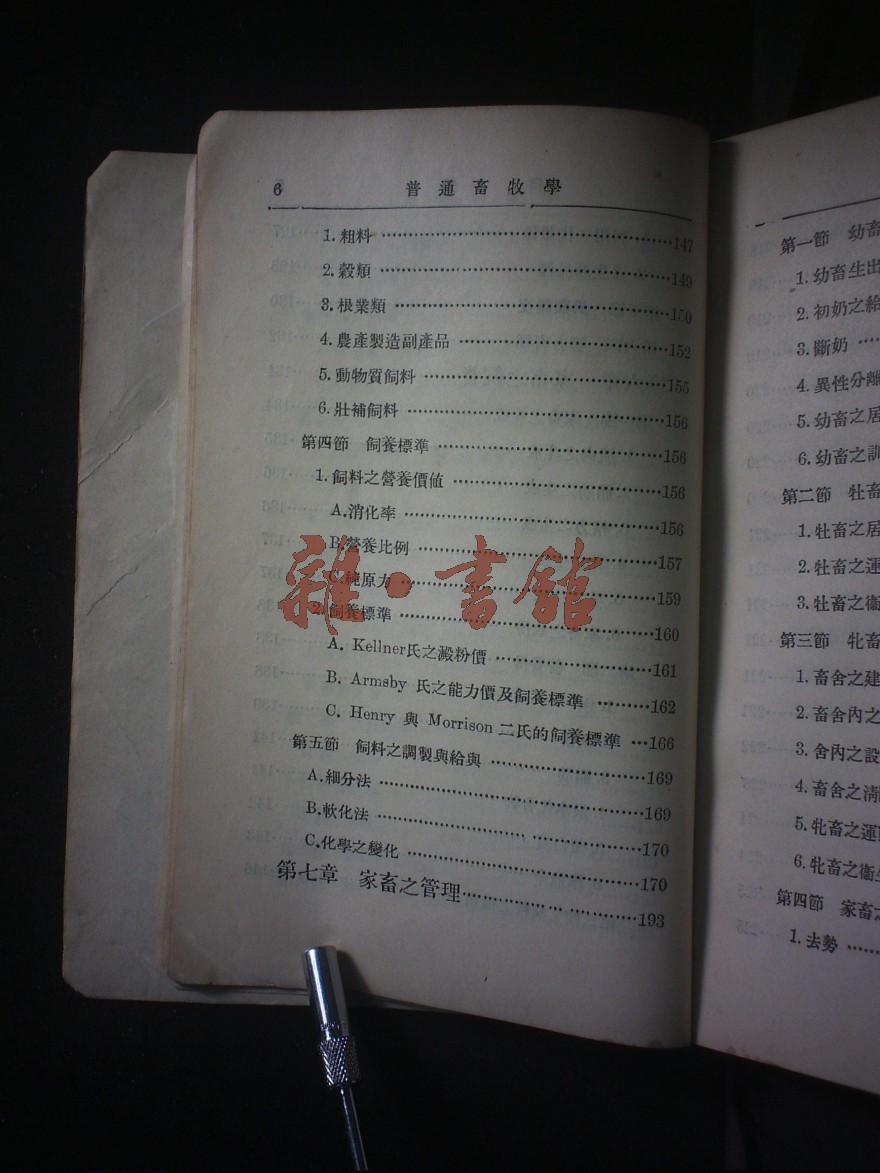 6 普通畜牧學
1.粗料 ……147
2.穀類 ……149
3.根業類 ……150
4.農產製造副產品 ……152
5.動物質飼料 ……155
6.壯補飼料 ……156
第四節 飼養標準 ……156
1.飼料之營養價值 ……156
A.消化率 ……156
B.營養比例 ……157
C.純原力 ……159
2.飼養標準 ……160
A. Kellner氏之澱粉價 ……161
B. Armsby 氏之能力價及飼養標準 ……162
C. Henry 與 Morrison 二氏的飼養標準 …166
第五節 飼料之調製與給與 ……169
A.細分法 ……169
B.軟化法 ……170
C.化學之變化 ……170
第七章 家畜之管理 ……193
雜·書館
第一節 幼畜
1.幼畜生出
2.初奶之給
3.斷奶 ……
4.異性分離
5.幼畜之居
6.幼畜之訓
第二節 牡畜
1.牡畜之居
2.牡畜之運
3.牡畜之衞
第三節 牝畜
1.畜舍之建
2.畜舍內之
3.舍內之設
4.畜舍之清
5.牝畜之運
6.牝畜之衞生
第四節 家畜之
1.去勢 ……